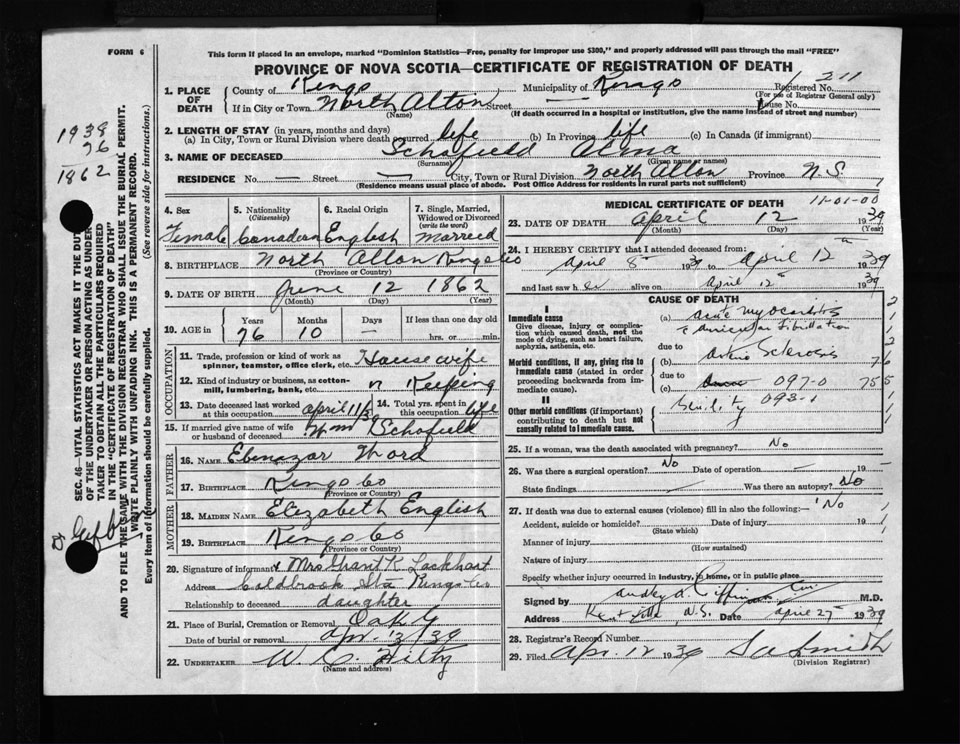 FORM 6
This form if placed in an envelope, marked "Dominion Statistics—Free, penalty for improper use $300," and properly addressed will pass through the mail "FREE"
PROVINCE OF NOVA SCOTIA—CERTIFICATE OF REGISTRATION OF DEATH
1. PLACE OF DEATH
County of Kings Municipality of Kings Registered No. 211
(For use of Registrar General only)
If in City or Town North Alton Street — House No.
(Name) (If death occurred in a hospital or institution, give the name instead of street and number)
2. LENGTH OF STAY (in years, months and days)
(a) In City, Town or Rural Division where death occurred life (b) In Province life (c) In Canada (if immigrant)
3. NAME OF DECEASED Schofield Alma
(Surname) (Given name or names)
RESIDENCE No. — Street — City, Town or Rural Division North Alton Province N.S.
(Residence means usual place of abode. Post Office Address for residents in rural parts not sufficient)
1938
76
1862
SEC. 46—VITAL STATISTICS ACT MAKES IT THE DUTY
OF THE UNDERTAKER OR PERSON ACTING AS UNDER-
TAKER TO OBTAIN ALL THE PARTICULARS REQUIRED
IN THE "CERTIFICATE OF REGISTRATION OF DEATH"
AND TO FILE THE SAME WITH THE DIVISION REGISTRAR WHO SHALL ISSUE THE BURIAL PERMIT.
WRITE PLAINLY WITH UNFADING INK. THIS IS A PERMANENT RECORD.
Every item of information should be carefully supplied. (See reverse side for instructions.)
4. Sex
Female
5. Nationality
(Citizenship)
Canadian
6. Racial Origin
English
7. Single, Married, Widowed or Divorced
(write the word)
Married
8. BIRTHPLACE North Alton Kings Co
(Province or Country)
9. DATE OF BIRTH June 12 1862
(Month) (Day) (Year)
10. AGE in Years Months Days If less than one day old
76 10 — hrs. or min.
OCCUPATION
11. Trade, profession or kind of work as spinner, teamster, office clerk, etc. Housewife
12. Kind of industry or business, as cotton-mill, lumbering, bank, etc. " Keeping
13. Date deceased last worked at this occupation April 11/3
14. Total yrs. spent in this occupation life
15. If married give name of wife or husband of deceased Wm Schofield
FATHER
16. NAME Ebenezar Ward
17. BIRTHPLACE Kings Co
(Province or Country)
MOTHER
18. MAIDEN NAME Elizabeth English
19. BIRTHPLACE Kings Co
(Province or Country)
20. Signature of informant Mrs Grant K. Lockhart
Address Coldbrook Sta Kings Co
Relationship to deceased daughter
21. Place of Burial, Cremation or Removal Oak G
Date of burial or removal Apr. 13/39
22. UNDERTAKER W. C. Hilty
(Name and address)
MEDICAL CERTIFICATE OF DEATH 11-01-00
23. DATE OF DEATH April 12 1939
(Month) (Day) (Year)
24. I HEREBY CERTIFY that I attended deceased from:
April 8th 1939 to April 12th 1939
and last saw her alive on April 12th 1939
CAUSE OF DEATH
I
Immediate cause
Give disease, injury or complication which caused death, not the mode of dying, such as heart failure, asphyxia, asthenia, etc.
(a) acute myocarditis
& Auricular Fibrillation
due to
Morbid conditions, if any, giving rise to immediate cause (stated in order proceeding backwards from immediate cause).
(b) Arterio Sclerosis
due to
(c) 097-0
II
Other morbid conditions (if important) contributing to death but not causally related to immediate cause.
Senility 093-1
25. If a woman, was the death associated with pregnancy? No
26. Was there a surgical operation? No Date of operation — 19
State findings Was there an autopsy? No
27. If death was due to external causes (violence) fill in also the following:— No
Accident, suicide or homicide? Date of injury 19
(State which)
Manner of injury
(How sustained)
Nature of injury
Specify whether injury occurred in industry, in home, or in public place
Signed by M.D.
Address Kentville N.S. Date April 27 1939
28. Registrar's Record Number
29. Filed Apr. 12 1939 Smith
(Division Registrar)